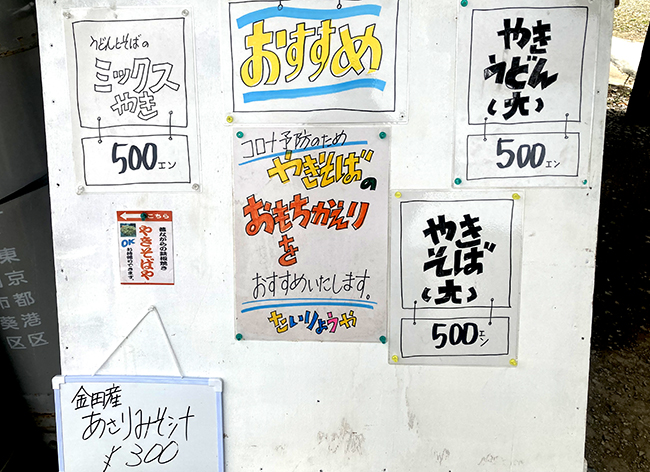 うどんとそばの
ミックス
やき
500エン
おすすめ
やき
うどん
(大)
500エン
コロナ予防のため
やきそばの
おもちかえり
を
おすすめいたします。
たいりょうや
やき
そば
(大)
500エン
こちら
昔ながらの鉄板焼き
やきそばや
OK
金田産
あさりみそ汁
¥300
東
京
都
市
港
葵
区
区